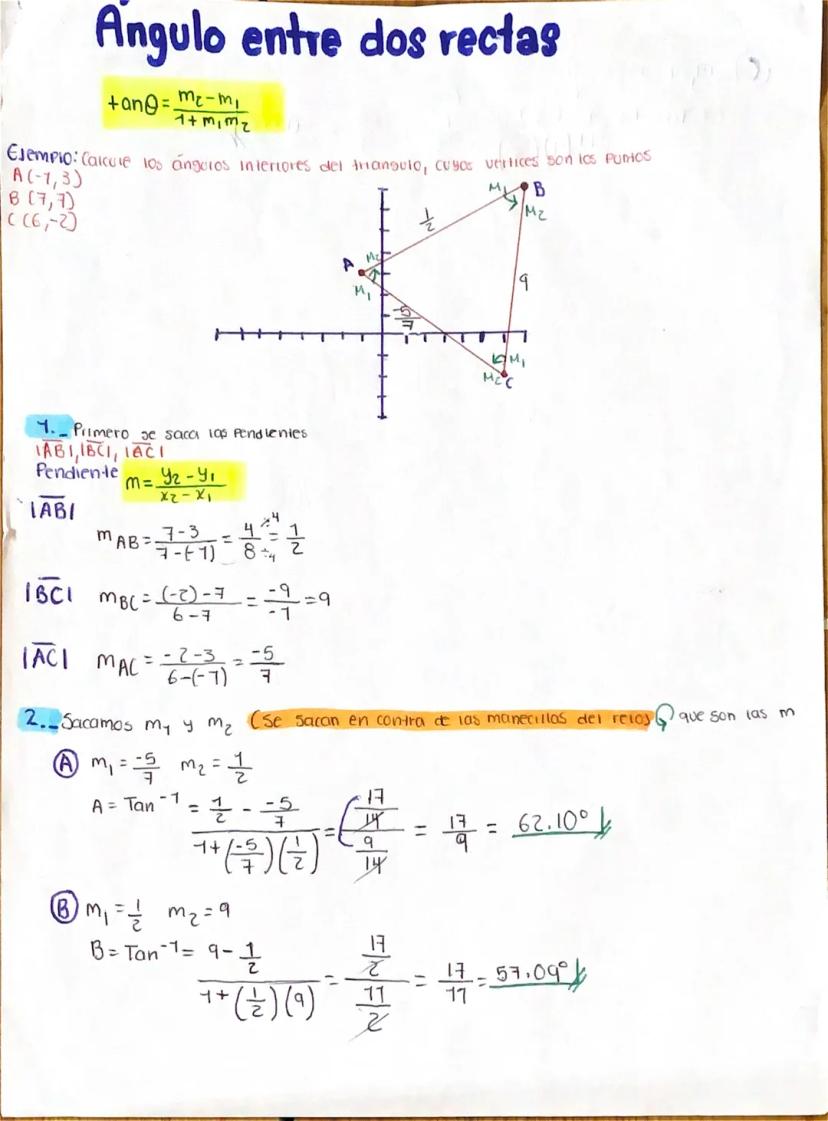 Angulo entre dos rectas
tanθ = m₂ - m₁ / 1 + m₁m₂
Ejemplo: Calcule los ángulos interiores del triangulo, cuyos vertices son los puntos
A (-1, 3)
B (7, 7)
C (6, -2)
M₁ B
M₂
1/2
A M₂
M₁
9
-5/7
M₁
M₂ C
1._ Primero se saca las Pendientes
|AB|, |BC|, |AC|
Pendiente m = y₂ - y₁ / x₂ - x₁
|AB|
m AB = 7-3 / 7-(-1) = 4 ÷4 / 8 ÷4 = 1/2
|BC| m BC = (-2)-7 / 6-7 = -9/-1 = 9
|AC| m AC = -2-3 / 6-(-1) = -5/7
2._ Sacamos m₁ y m₂ (Se sacan en contra de las manecillas del reloj) que son las m
A m₁ = -5/7 m₂ = 1/2
A = Tan⁻¹ = 1/2 - -5/7 / 1+(-5/7)(1/2) = 17/14 / 9/14 = 17/9 = 62.10°
B m₁ = 1/2 m₂ = 9
B = Tan⁻¹ = 9 - 1/2 / 1+(1/2)(9) = 17/2 / 11/2 = 17/11 = 57.09°